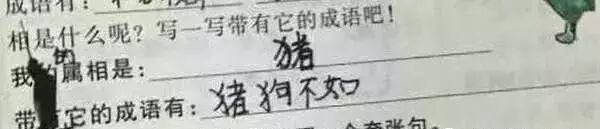 成语有：
相是什么呢？写一写带有它的成语吧！
我的属相是：猪
带有它的成语有：猪狗不如
个夸张句。